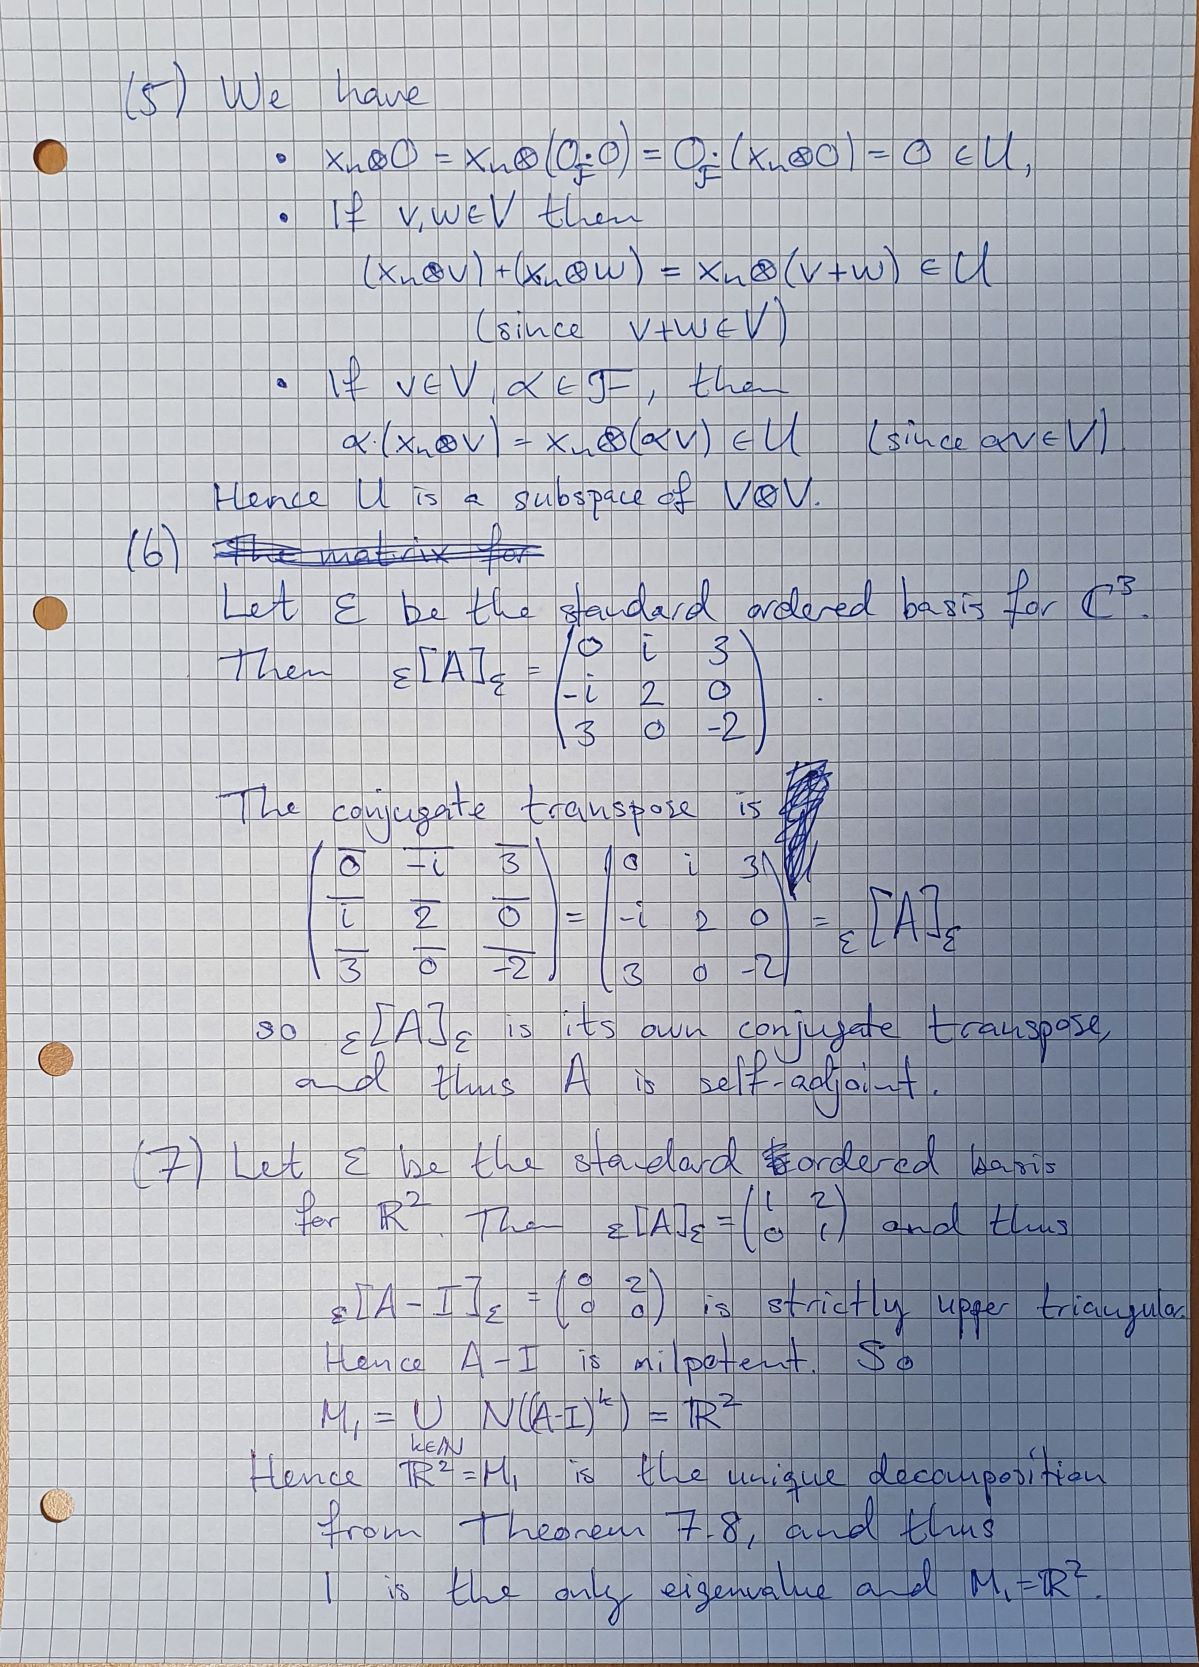 (5) We have
• xₙ⊗0 = xₙ⊗(0_F·0) = 0_F·(xₙ⊗0) = 0 ∈ U,
• If v,w∈V then
(xₙ⊗v)+(xₙ⊗w) = xₙ⊗(v+w) ∈ U
(since v+w∈V)
• If v∈V, α∈F, then
α·(xₙ⊗v) = xₙ⊗(αv) ∈ U (since αv∈V)
Hence U is a subspace of V⊗V.
(6) The matrix for
Let Ɛ be the standard ordered basis for ℂ³.
Then Ɛ[A]Ɛ = (0 i 3
-i 2 0
3 0 -2)
The conjugate transpose is
(0̅ \overline{-i} 3̅ 
i̅ 2̅ 0̅ 
3̅ 0̅ \overline{-2}) = (0 i 3
-i 2 0
3 0 -2) = Ɛ[A]Ɛ
so Ɛ[A]Ɛ is its own conjugate transpose,
and thus A is self-adjoint.
(7) Let Ɛ be the standard ordered basis
for ℝ². Then Ɛ[A]Ɛ = (1 2
0 1) and thus
Ɛ[A-I]Ɛ = (0 2
0 0) is strictly upper triangular.
Hence A-I is nilpotent. So
M₁ = ∪_{k∈ℕ} N((A-I)ᵏ) = ℝ²
Hence ℝ²=M₁ is the unique decomposition
from Theorem 7.8, and thus
1 is the only eigenvalue and M₁=ℝ².